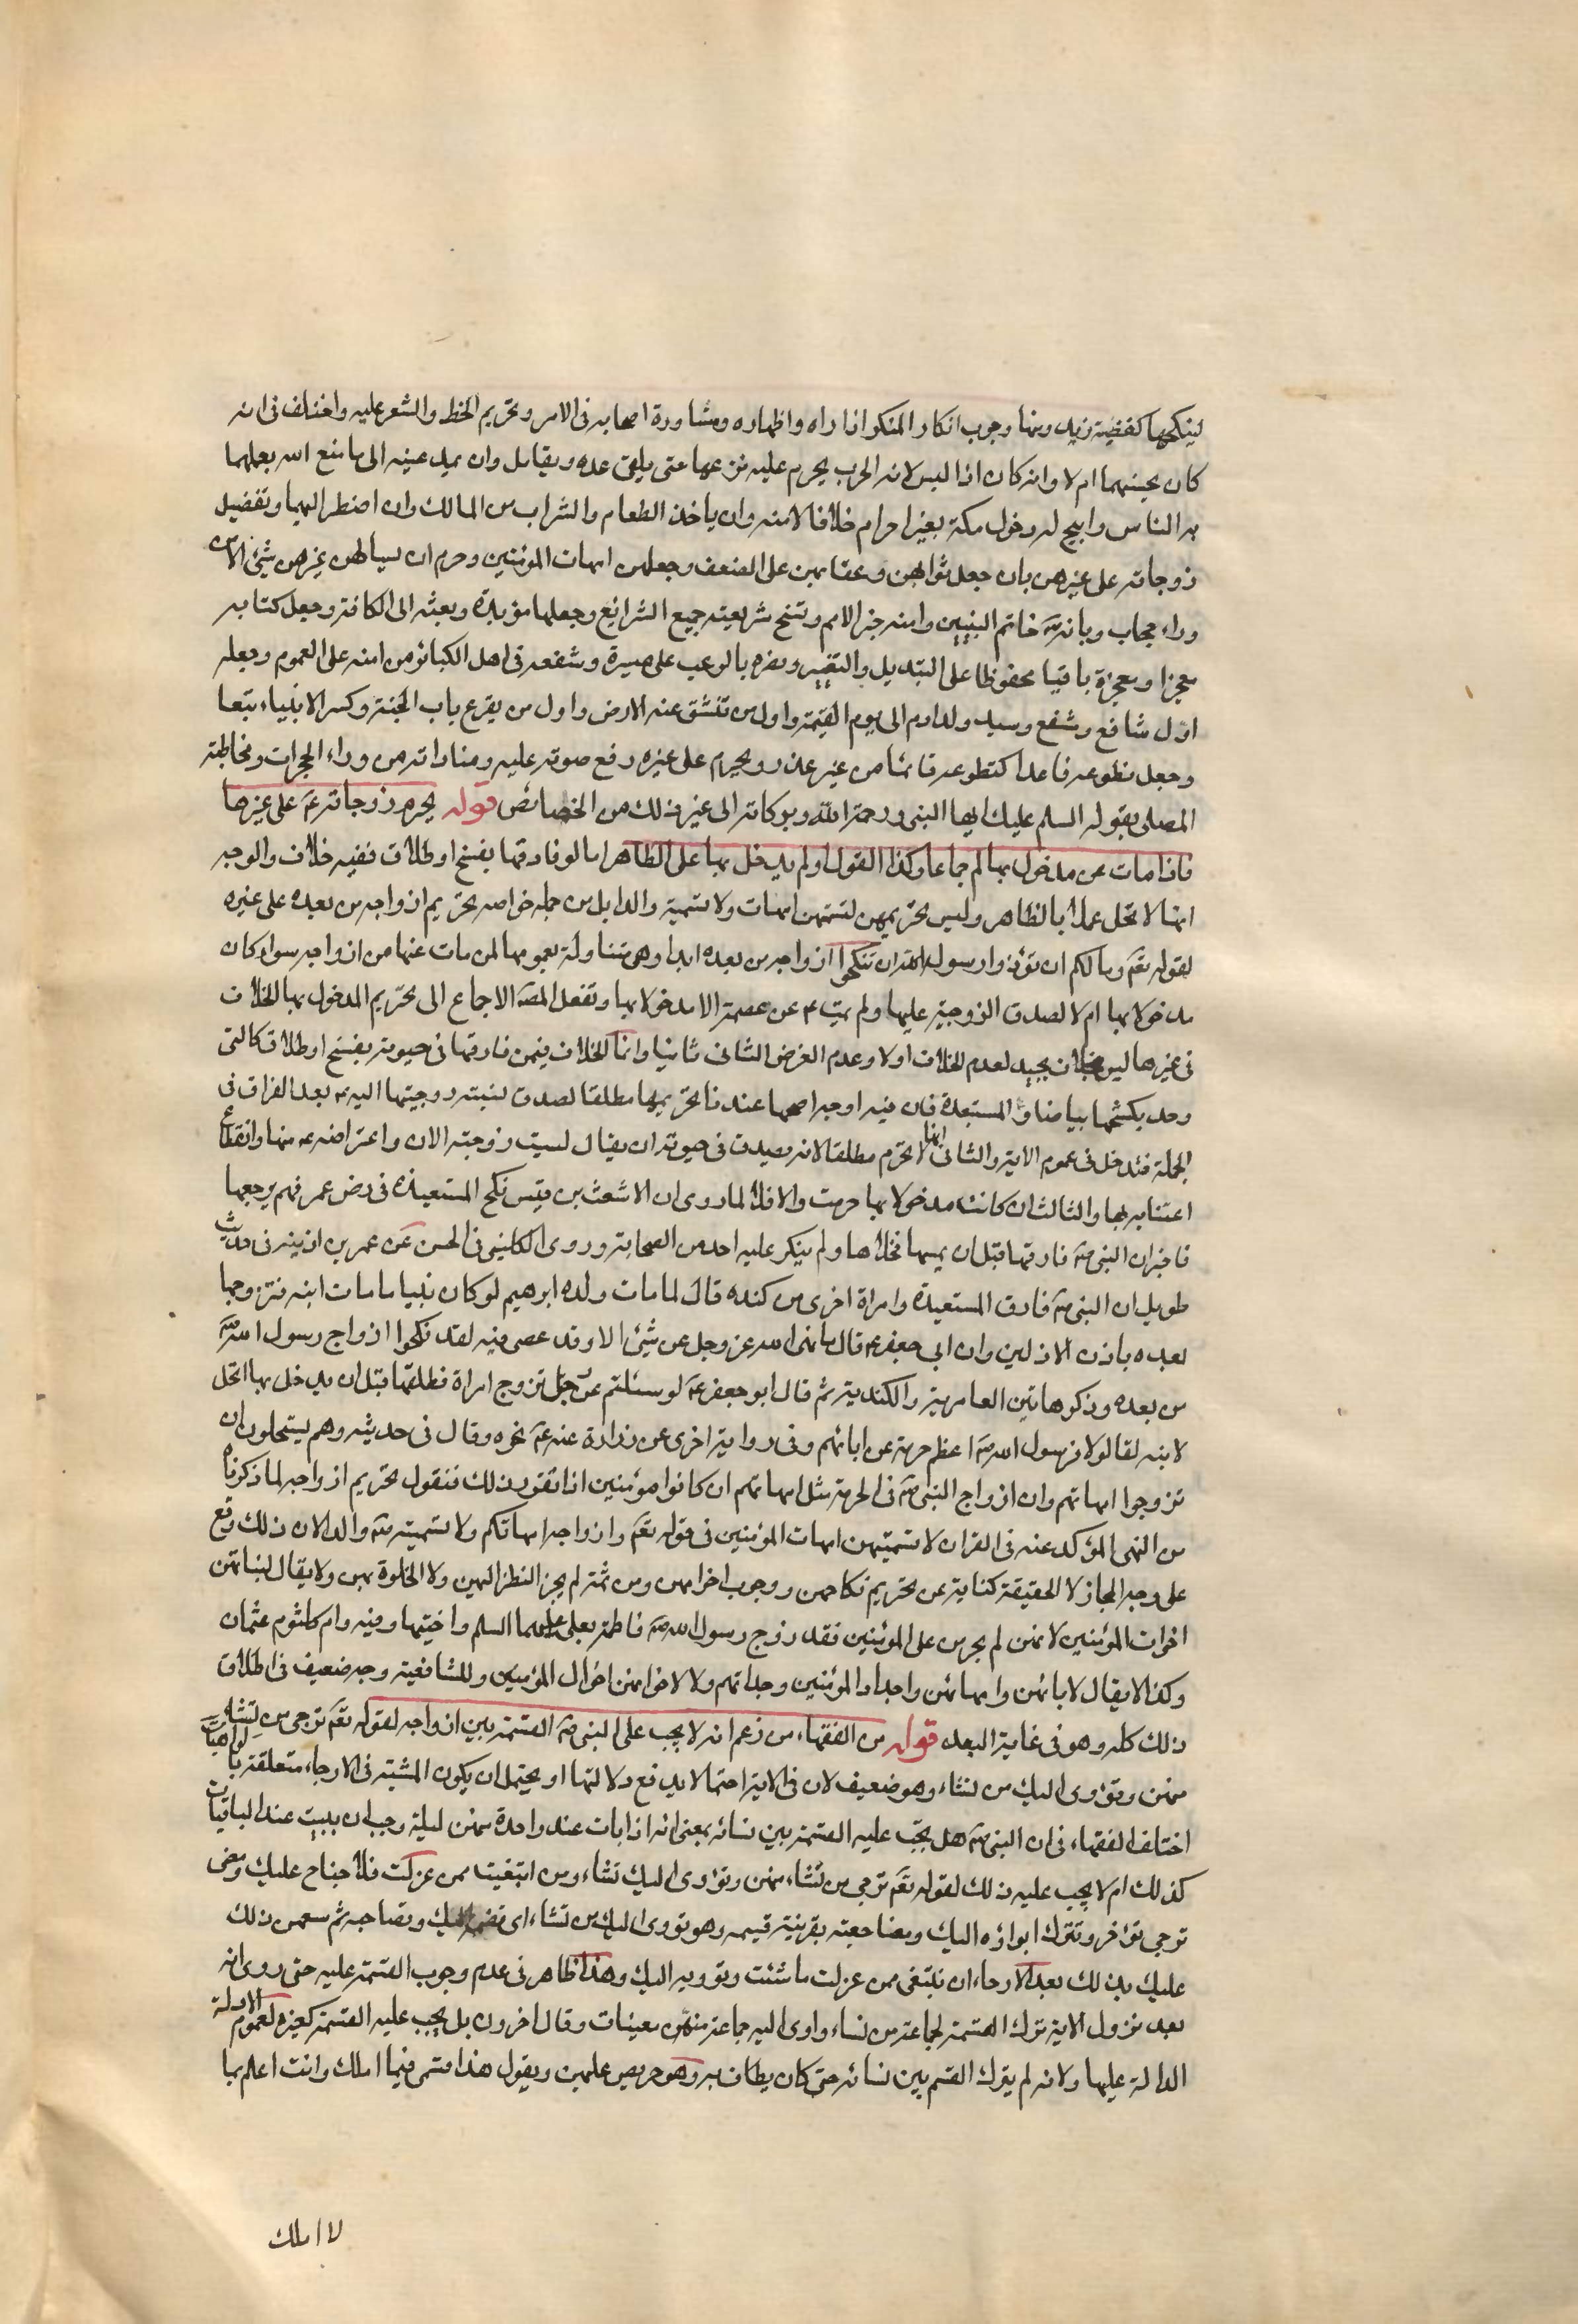 لينكحها كقضية زيد ومنها وجوب انكار المنكر اذا راه واظهاره ومشاورة اصحابه فى الامر وتحريم الخط والشعر عليه واختلف فى انه
كان يحسنهما ام لا وانه كان اذا لبس لامة الحرب يحرم عليه نزعها حتى يلقى عدوه ويقاتل وان يمد عينه الى ما متع الله بعلهما
به الناس وابيح له دخول مكة بغير احرام خلافا لامته وان ياخذ الطعام والشراب من المالك وان اضطر اليهما وتفضيل
زوجاته على غيرهن بان جعل ثوابهن وعقابهن على الضعف وجعلهن امهات المؤمنين وحرم ان يسالهن غيرهن شيئ الا من
وراء حجاب وبانه ص خاتم النبيين وامته خير الامم ونسخ شريعته جميع الشرايع وجعلها مؤبدة وبعثه الى الكافة وجعل كتابه
معجزا ومعجزة باقيا محفوظا على التبديل والتغيير ونصره بالرعب على مسيرة وشفعه فى اهل الكبائر من امته على العموم وجعله
اول شافع ومشفع وسيد ولد ادم الى يوم القيمة واول من تنشق عنه الارض واول من يقرع باب الجنة واكثر الانبياء تبعا
وجعل تطوعه قاعدا كتطوعه قائما من غير عذر ويحرم على غيره رفع صوته عليه ومناداته من وراء الحجرات ومخاطبة
المصلى بقوله السلم عليك ايها النبى ورحمة الله وبركاته الى غير ذلك من الخصائص قوله يحرم زوجاته ع على غيره ما
فاذا مات عن مدخول بها لم اجماعا وكذا القول لو لم يدخل بها على الظاهر اما لو فارقها بفسخ او طلاق ففيه خلاف والوجه
انها لا تحل عملا بالظاهر وليس تحريمهن لتسمتهن امهات ولا لتسمية والدا بل من جملة خواصه تحريم ازواجه من بعده على غيره
لقوله تع وما لكم ان تؤذوا رسول الله ان تنكحوا ازواجه من بعده ابدا وهى متناولة بعمومها لمن مات عنها من ازواجه سواء كان
مدخولا بها ام لا لصدق الزوجية عليها ولم يمت ع عن عصمة الا مدخولا بها ونقل المص الاجماع الى تحريم المدخول بها الخلاف
فى غيرها ليس بجيد لعدم الخلاف اولا وعدم الغرض الثانى ثانيا وانما الخلاف فيمن فارقها فى حيوته بفسخ او طلاق كالتى
وجد بكشحها بياضا والمستعيذة فان فيه اوجه اصحها عندنا تحريمها مطلقا لصدق نسبة زوجيتها اليه ع بعد الفراق فى
الجملة فتدخل فى عموم الاية والثانى انها لا تحرم مطلقا لانه يصدق فى حيوته ان يقال ليست زوجته الان واعراضه عنها وانقطاع
اعتنائه بها والثالث ان كانت مدخولا بها حرمت والا فلا لما روى ان الاشعث بن قيس نكح المستعيذة فى زمن عمر فهم برجمها
فاخبر ان النبى ص فارقها قبل ان يمسها فخلاها ولم ينكر عليه احد من الصحابة وروى الكلينى فى الحسن عن عمر بن اذينه فى حديث
طويل ان النبى ص فارق المستعيذة وامراة اخرى من كنده قال لما مات ولده ابرهيم لو كان نبيا ما مات ابنه فتزوجها
بعده باذن الاولين وان ابى جعفر ع قال ما نهى الله عز وجل عن شيئ الا وقد عصى فيه لقد نكحوا ازواج رسول الله ص
من بعده وذكر هاتين العامرية والكندية ثم قال ابو جعفر ع لو سئلتم عن رجل تزوج امراة فطلقها قبل ان يدخل بها اتحل
لابنه لقالوا لا فرسول الله ص اعظم حرمة من ابائهم وفى رواية اخرى عن زرارة عنه ع نحوه وقال فى حديثه وهم يستحلون ان
تزوجوا امهاتهم وان ازواج النبى ص فى الحرمة مثل امهاتهم ان كانوا مؤمنين اذا تقرر ذلك فنقول تحريم ازواجه لما ذكرناه
من النهى المؤكد عنه فى القران لا لتسميتهن امهات المؤمنين فى قوله تع وازواجه امهاتكم ولا لتسميته ص والدا لان ذلك وقع
على وجه المجاز لا الحقيقة كناية عن تحريم نكاحهن ووجوب احترامهن ومن ثمة لم يجز النظر اليهن ولا الخلوة بهن ولا يقال لبناتهن
اخوات المؤمنين لانهن لم يحرمن على المؤمنين فقد زوج رسول الله ص فاطمة بعلى عليهما السلم واختيها رقيه وام كلثوم عثمان
وكذا لا يقال لابائهن وامهاتهن واجداد المؤمنين وجداتهم ولا لاخوانهن اخوال المؤمنين وللشافعية وجه ضعيف فى اطلاق
ذلك كله وهو فى غاية البعد قوله من الفقهاء من زعم انه لا يجب على النبى ص القسمة بين ازواجه لقوله تع ترجى من تشاء
منهن وتؤوى اليك من تشاء وهو ضعيف لان فى الاية احتمالا يدفع دلالتها اذ يحتمل ان يكون المشية فى الارجاء متعلقة بالواهبات
اختلف الفقهاء فى ان النبى ص هل يجب عليه القسمة بين نسائه بمعنى انه اذا بات عند واحدة منهن ليلة وجب ان يبيت عند الباقيات
كذلك ام لا يجب عليه ذلك لقوله تع ترجى من تشاء منهن وتؤوى اليك تشاء ومن ابتغيت ممن عزلت فلا جناح عليك ومعنى
ترجى تؤخر وتترك ايواءه اليك ومضاجعته بقرينة قسيمه وهو تؤوى اليك من تشاء اى تضمه اليك وتضاجعه ثم ذلك
عليك بذلك بعد الارجاء ان تبتغى ممن عزلت ما شئت وتؤويه اليك وهذا ظاهر فى عدم وجوب القسمة عليه حتى روى انه
بعد نزول الاية ترك القسمة لجماعة من نساءه واوى اليه جماعة منهن معينات وقال اخرون بل يجب عليه القسمة كغيره لعموم الادلة
الدالة عليها ولانه لم يترك القسم بين نسائه حتى كان يطاف به وهو مريض عليهن ويقول هذا قسمى فيما املك وانت اعلم بما
لا املك